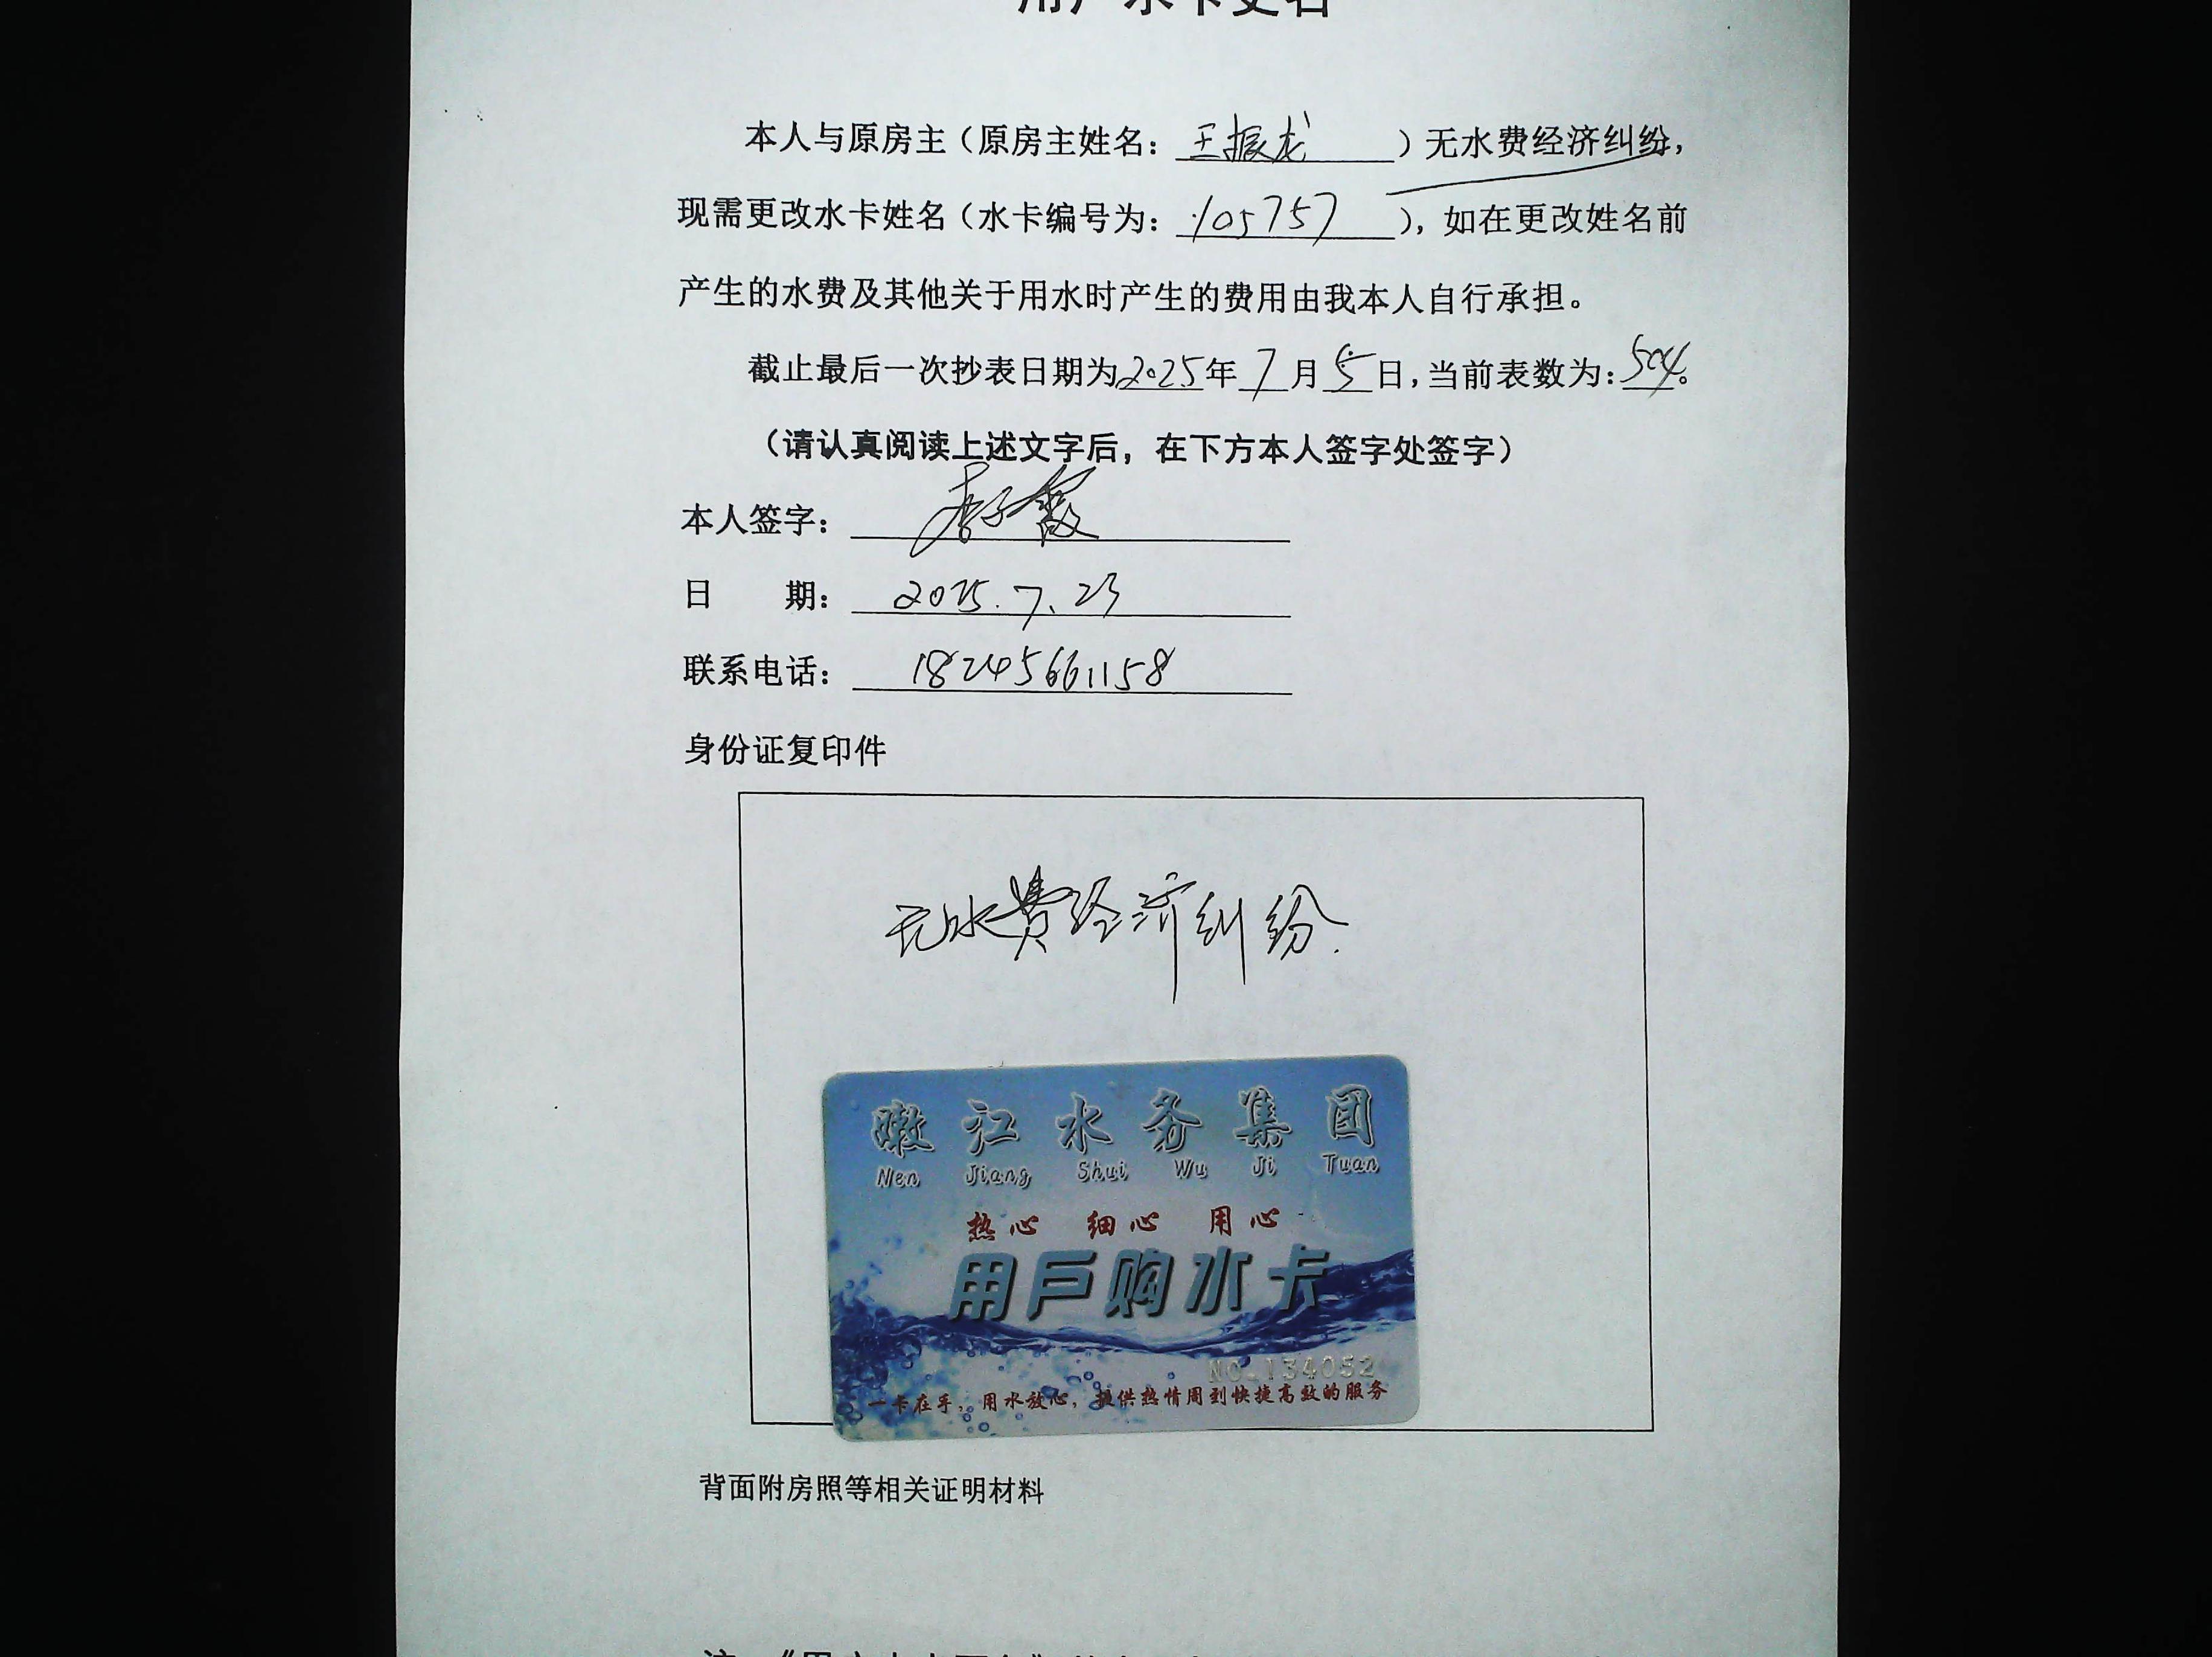 用户水卡更名
本人与原房主（原房主姓名：王振龙）无水费经济纠纷，
现需更改水卡姓名（水卡编号为：105757），如在更改姓名前
产生的水费及其他关于用水时产生的费用由我本人自行承担。
截止最后一次抄表日期为2025年7月5日，当前表数为：504。
（请认真阅读上述文字后，在下方本人签字处签字）
本人签字：
日 期：2025.7.23
联系电话：18245661158
身份证复印件
无水费经济纠纷.
嫩江水务集团
Nen Jiang Shui Wu Ji Tuan
热心 细心 用心
用户购水卡
NO.134052
一卡在手，用水放心，提供热情周到快捷高效的服务
背面附房照等相关证明材料